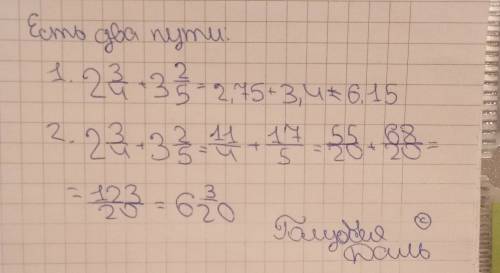 Есть два пути:
1. 2 3/4 + 3 2/5 = 2,75 + 3,4 = 6,15
2. 2 3/4 + 3 2/5 = 11/4 + 17/5 = 55/20 + 68/20 =
= 123/20 = 6 3/20
©
Голубая
Даль